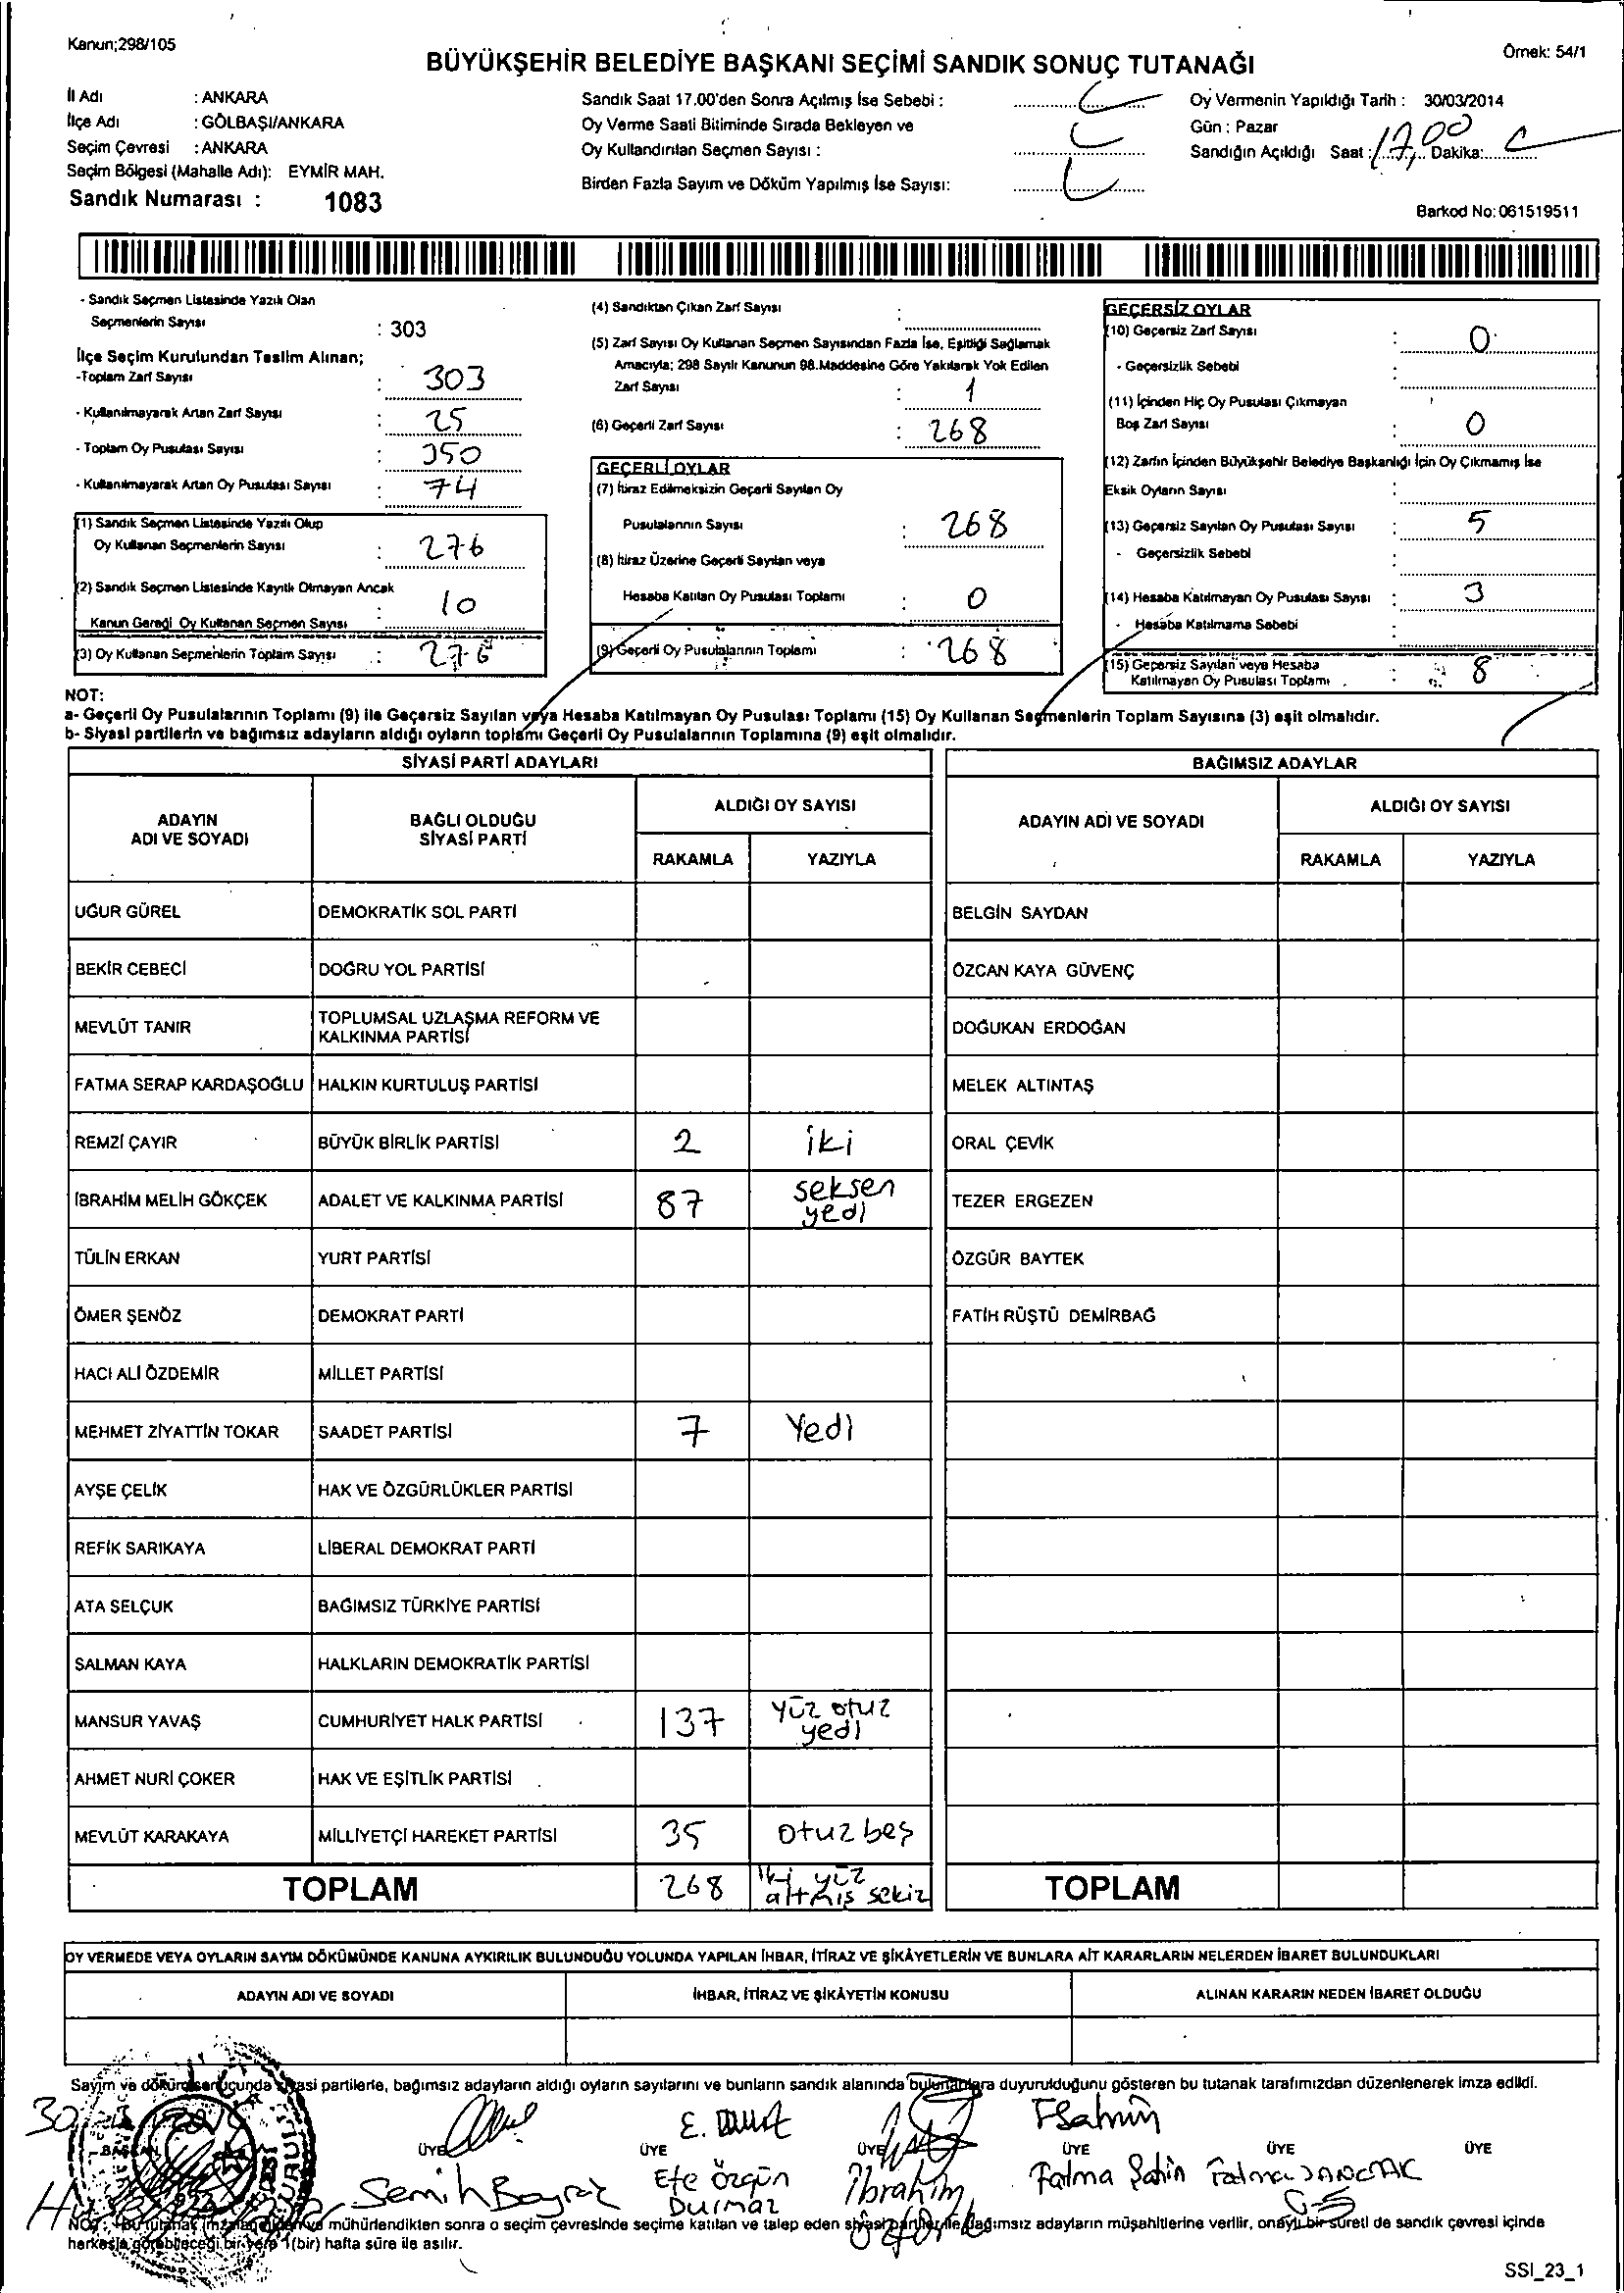 Kanun;298/105
Örnek: 54/1
BÜYÜKŞEHİR BELEDİYE BAŞKANI SEÇİMİ SANDIK SONUÇ TUTANAĞI
İl Adı : ANKARA
İlçe Adı : GÖLBAŞI/ANKARA
Seçim Çevresi : ANKARA
Seçim Bölgesi (Mahalle Adı): EYMİR MAH.
Sandık Numarası : 1083
Sandık Saat 17.00'den Sonra Açılmış İse Sebebi :
Oy Verme Saati Bitiminde Sırada Bekleyen ve
Oy Kullandırılan Seçmen Sayısı :
Birden Fazla Sayım ve Döküm Yapılmış İse Sayısı:
Oy Vermenin Yapıldığı Tarih : 30/03/2014
Gün : Pazar
Sandığın Açıldığı Saat : 17,00 Dakika:
Barkod No:061519511
- Sandık Seçmen Listesinde Yazılı Olan
Seçmenlerin Sayısı : 303
İlçe Seçim Kurulundan Teslim Alınan;
-Toplam Zarf Sayısı : 303
- Kullanılmayarak Artan Zarf Sayısı : 25
- Toplam Oy Pusulası Sayısı : 350
- Kullanılmayarak Artan Oy Pusulası Sayısı : 74
(1) Sandık Seçmen Listesinde Yazılı Olup
Oy Kullanan Seçmenlerin Sayısı : 276
(2) Sandık Seçmen Listesinde Kayıtlı Olmayan Ancak
Kanun Gereği Oy Kullanan Seçmen Sayısı : 10
(3) Oy Kullanan Seçmenlerin Toplam Sayısı : 276
(4) Sandıktan Çıkan Zarf Sayısı :
(5) Zarf Sayısı Oy Kullanan Seçmen Sayısından Fazla İse, Eşitliği Sağlamak
Amacıyla; 298 Sayılı Kanunun 98.Maddesine Göre Yakılarak Yok Edilen
Zarf Sayısı : 1
(6) Geçerli Zarf Sayısı : 268
GEÇERLİ OYLAR
(7) İtiraz Edilmeksizin Geçerli Sayılan Oy
Pusulalarının Sayısı : 268
(8) İtiraz Üzerine Geçerli Sayılan veya
Hesaba Katılan Oy Pusulası Toplamı : 0
(9) Geçerli Oy Pusulalarının Toplamı : 268
GEÇERSİZ OYLAR
(10) Geçersiz Zarf Sayısı : 0
- Geçersizlik Sebebi :
(11) İçinden Hiç Oy Pusulası Çıkmayan
Boş Zarf Sayısı : 0
(12) Zarfın İçinden Büyükşehir Belediye Başkanlığı İçin Oy Çıkmamış İse
Eksik Oyların Sayısı :
(13) Geçersiz Sayılan Oy Pusulası Sayısı : 5
- Geçersizlik Sebebi :
(14) Hesaba Katılmayan Oy Pusulası Sayısı : 3
- Hesaba Katılmama Sebebi :
(15) Geçersiz Sayılan veya Hesaba
Katılmayan Oy Pusulası Toplamı : 8
NOT:
a- Geçerli Oy Pusulalarının Toplamı (9) ile Geçersiz Sayılan veya Hesaba Katılmayan Oy Pusulası Toplamı (15) Oy Kullanan Seçmenlerin Toplam Sayısına (3) eşit olmalıdır.
b- Siyasi partilerin ve bağımsız adayların aldığı oyların toplamı Geçerli Oy Pusulalarının Toplamına (9) eşit olmalıdır.
SİYASİ PARTİ ADAYLARI
ADAYIN ADI VE SOYADI
BAĞLI OLDUĞU SİYASİ PARTİ
ALDIĞI OY SAYISI
RAKAMLA YAZIYLA
UĞUR GÜREL DEMOKRATİK SOL PARTİ
BEKİR CEBECİ DOĞRU YOL PARTİSİ
MEVLÜT TANIR TOPLUMSAL UZLAŞMA REFORM VE KALKINMA PARTİSİ
FATMA SERAP KARDAŞOĞLU HALKIN KURTULUŞ PARTİSİ
REMZİ ÇAYIR BÜYÜK BİRLİK PARTİSİ 2 iki
İBRAHİM MELİH GÖKÇEK ADALET VE KALKINMA PARTİSİ 87 seksen yedi
TÜLİN ERKAN YURT PARTİSİ
ÖMER ŞENÖZ DEMOKRAT PARTİ
HACI ALİ ÖZDEMİR MİLLET PARTİSİ
MEHMET ZİYATTİN TOKAR SAADET PARTİSİ 7 Yedi
AYŞE ÇELİK HAK VE ÖZGÜRLÜKLER PARTİSİ
REFİK SARIKAYA LİBERAL DEMOKRAT PARTİ
ATA SELÇUK BAĞIMSIZ TÜRKİYE PARTİSİ
SALMAN KAYA HALKLARIN DEMOKRATİK PARTİSİ
MANSUR YAVAŞ CUMHURİYET HALK PARTİSİ 137 yüz otuz yedi
AHMET NURİ ÇOKER HAK VE EŞİTLİK PARTİSİ
MEVLÜT KARAKAYA MİLLİYETÇİ HAREKET PARTİSİ 35 otuz beş
TOPLAM 268 iki yüz altmış sekiz
BAĞIMSIZ ADAYLAR
ADAYIN ADI VE SOYADI
ALDIĞI OY SAYISI
RAKAMLA YAZIYLA
BELGİN SAYDAN
ÖZCAN KAYA GÜVENÇ
DOĞUKAN ERDOĞAN
MELEK ALTINTAŞ
ORAL ÇEVİK
TEZER ERGEZEN
ÖZGÜR BAYTEK
FATİH RÜŞTÜ DEMİRBAĞ
TOPLAM
OY VERMEDE VEYA OYLARIN SAYIM DÖKÜMÜNDE KANUNA AYKIRILIK BULUNDUĞU YOLUNDA YAPILAN İHBAR, İTİRAZ VE ŞİKÂYETLERİN VE BUNLARA AİT KARARLARIN NELERDEN İBARET BULUNDUKLARI
ADAYIN ADI VE SOYADI
İHBAR, İTİRAZ VE ŞİKÂYETİN KONUSU
ALINAN KARARIN NEDEN İBARET OLDUĞU
Sayım ve döküm sonucunda siyasi partilerle, bağımsız adayların aldığı oyların sayılarını ve bunların sandık alanında bulunanlara duyurulduğunu gösteren bu tutanak tarafımızdan düzenlenerek imza edildi.
E. Durmaz FŞahin
BAŞKAN ÜYE ÜYE ÜYE ÜYE ÜYE ÜYE
Semih Bayrak
Efe Özgün Durmaz
İbrahim
Fatma Şahin
Fatma
NOT: Bu tutanak imzalandıktan ve mühürlendikten sonra o seçim çevresinde seçime katılan ve talep eden siyasi partiler ile bağımsız adayların müşahitlerine verilir, onaylı bir sureti de sandık çevresi içinde
herkesin görebileceği bir yere 1(bir) hafta süre ile asılır.
SSI_23_1